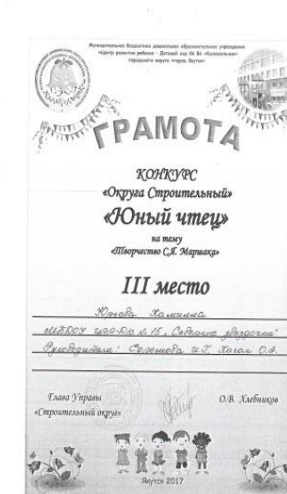 Муниципальное бюджетное дошкольное образовательное учреждение
«Центр развития ребенка - Детский сад № 86 «Колокольчик»
городского округа «город Якутск»
ГРАМОТА
КОНКУРС
«Округа Строительный»
«Юный чтец»
на тему
«Творчество С.Я. Маршака»
III место
Камилла
МБДОУ ЦРР-Д/с № 15 „Северные звездочки"
Руководители: И.Г. О.В.
Глава Управы
О.В. Хлебников
«Строительный округ»
Якутск 2017